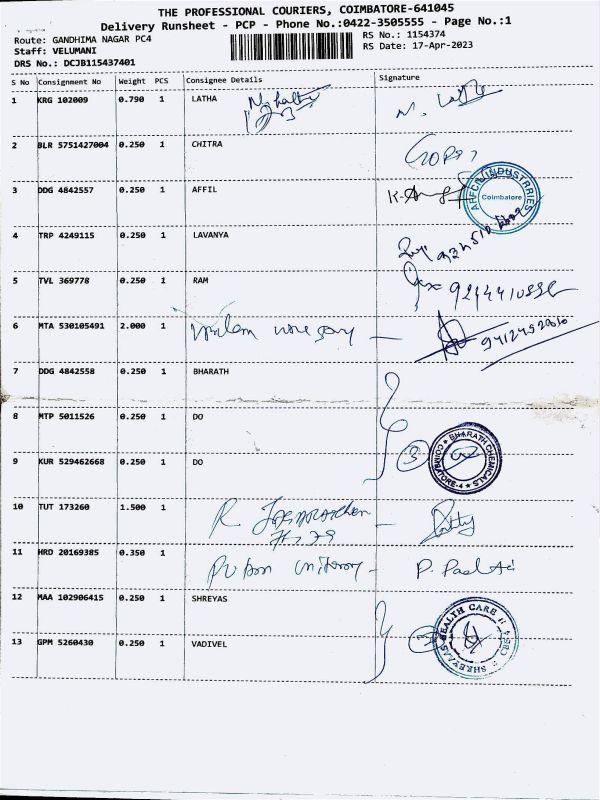 THE PROFESSIONAL COURIERS, COIMBATORE-641045
Delivery Runsheet - PCP - Phone No.:0422-3505555 - Page No.:1
Route: GANDHIMA NAGAR PC4
Staff: VELUMANI
DRS No.: DCJB115437401
RS No.: 1154374
RS Date: 17-Apr-2023
S No Consignment No Weight PCS Consignee Details Signature
1 KRG 102009 0.790 1 LATHA
2 BLR 5751427004 0.250 1 CHITRA
3 DDG 4842557 0.250 1 AFFIL
AFFCIL INDUSTRRIES
Coimbatore
4 TRP 4249115 0.250 1 LAVANYA
5 TVL 369778 0.250 1 RAM
6 MTA 530105491 2.000 1
7 DDG 4842558 0.250 1 BHARATH
8 MTP 5011526 0.250 1 DO
9 KUR 529462668 0.250 1 DO
3
BHARATH CHEMICALS
COIMBATORE-4
10 TUT 173260 1.500 1
11 HRD 20169385 0.350 1
12 MAA 102906415 0.250 1 SHREYAS
13 GPM 5260430 0.250 1 VADIVEL
SHREYAAS HEALTH CARE
CBE-4